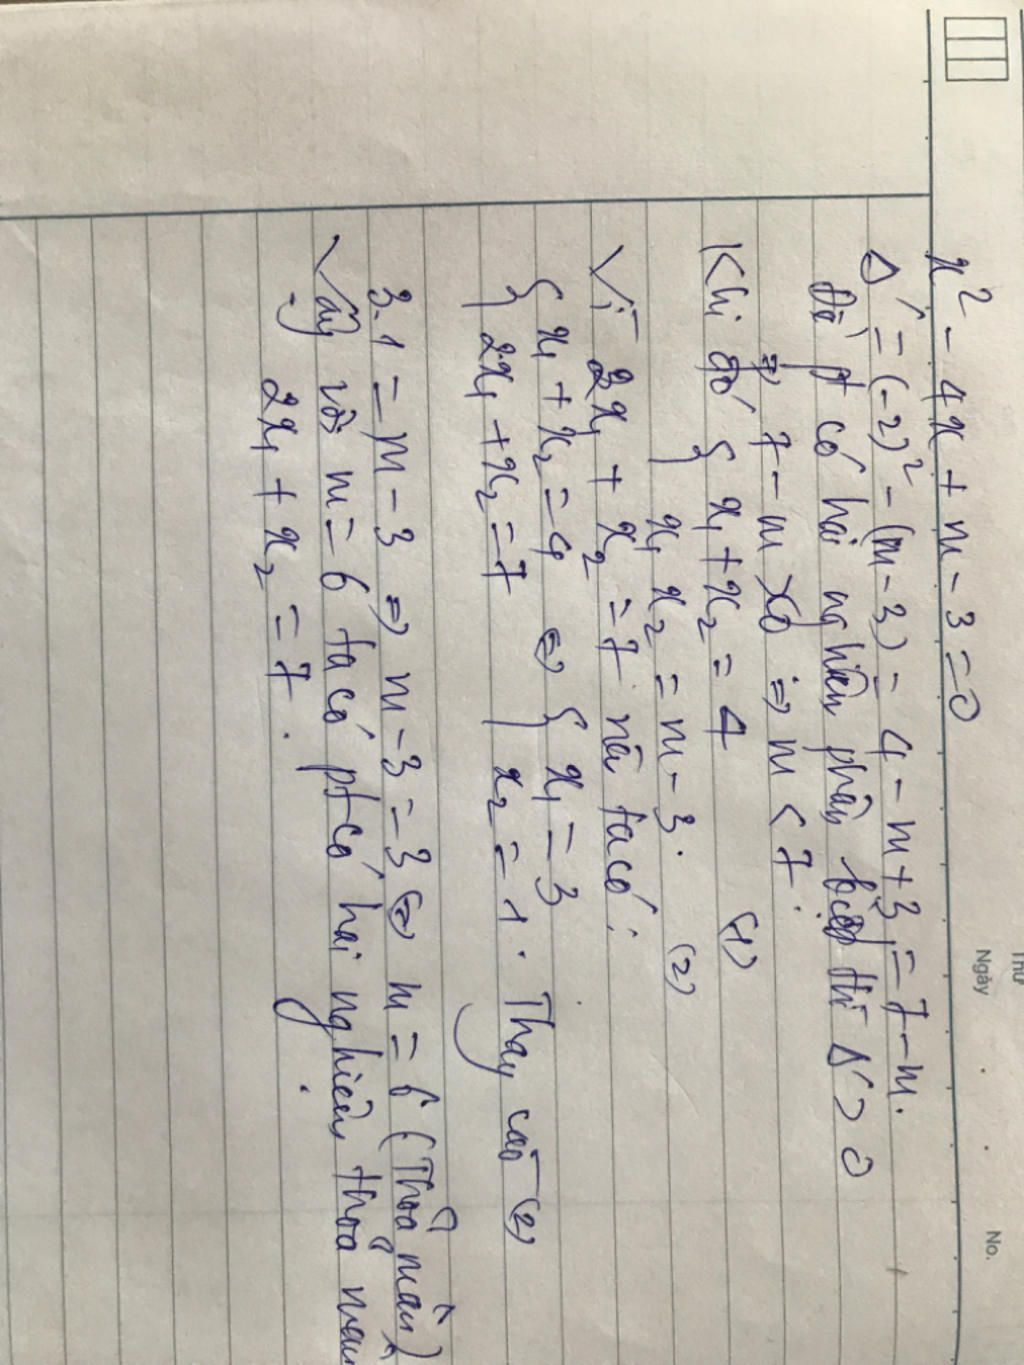 Thứ
Ngày
No.
x² - 4x + m - 3 = 0
Δ' = (-2)² - (m - 3) = 4 - m + 3 = 7 - m.
Để pt có hai nghiệm phân biệt thì Δ' > 0
⇒ 7 - m > 0 ⇒ m < 7.
Khi đó { x₁ + x₂ = 4 (1)
x₁ x₂ = m - 3. (2)
Vì 2x₁ + x₂ = 7 nên ta có:
{ x₁ + x₂ = 4 ⇔ { x₁ = 3
2x₁ + x₂ = 7 x₂ = 1. Thay vào (2)
3.1 = m - 3 ⇒ m - 3 = 3 ⇔ m = 6 (Thoả mãn)
Vậy với m = 6 ta có pt có hai nghiệm thoả mãn
2x₁ + x₂ = 7.